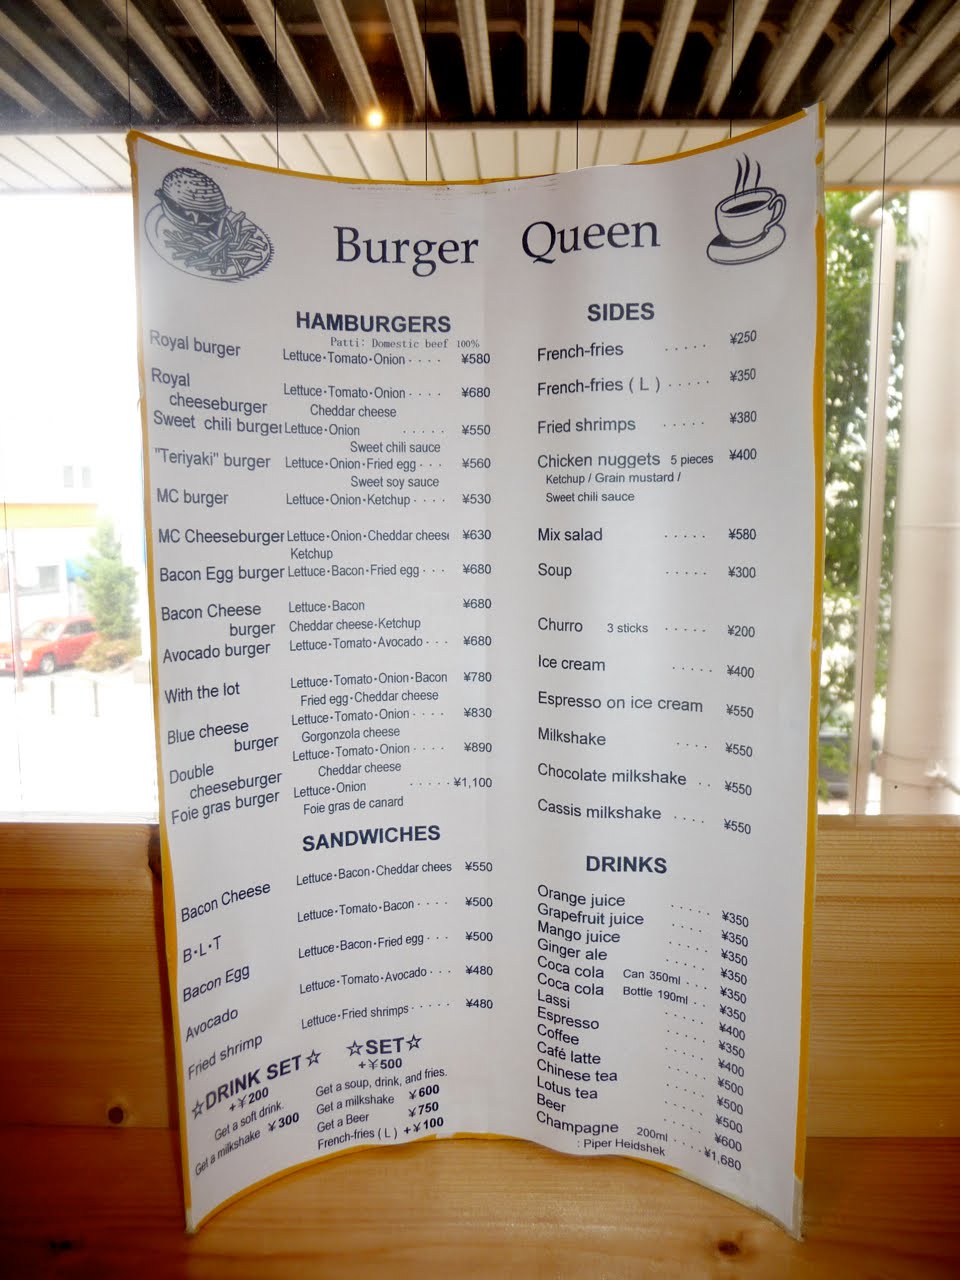 Burger Queen
HAMBURGERS
Patti: Domestic beef 100%
Royal burger Lettuce・Tomato・Onion ・・・・ ¥580
Royal cheeseburger Lettuce・Tomato・Onion ・・・・ ¥680
Cheddar cheese
Sweet chili burger Lettuce・Onion ・・・・・ ¥550
Sweet chili sauce
"Teriyaki" burger Lettuce・Onion・Fried egg ・・・ ¥560
Sweet soy sauce
MC burger Lettuce・Onion・Ketchup ・・・・ ¥530
MC Cheeseburger Lettuce・Onion・Cheddar cheese ¥630
Ketchup
Bacon Egg burger Lettuce・Bacon・Fried egg ・・・ ¥680
Bacon Cheese burger Lettuce・Bacon ¥680
Cheddar cheese・Ketchup
Avocado burger Lettuce・Tomato・Avocado ・・・ ¥680
With the lot Lettuce・Tomato・Onion・Bacon ¥780
Fried egg・Cheddar cheese
Blue cheese burger Lettuce・Tomato・Onion ・・・・ ¥830
Gorgonzola cheese
Double cheeseburger Lettuce・Tomato・Onion ・・・・ ¥890
Cheddar cheese
Foie gras burger Lettuce・Onion ・・・・・ ¥1,100
Foie gras de canard
SANDWICHES
Bacon Cheese Lettuce・Bacon・Cheddar chees ¥550
B・L・T Lettuce・Tomato・Bacon ・・・・ ¥500
Bacon Egg Lettuce・Bacon・Fried egg ・・・ ¥500
Avocado Lettuce・Tomato・Avocado ・・・ ¥480
Fried shrimp Lettuce・Fried shrimps ・・・・・ ¥480
☆DRINK SET☆
+¥200
Get a soft drink.
Get a milkshake ¥300
☆SET☆
+¥500
Get a soup, drink, and fries.
Get a milkshake ¥600
Get a Beer ¥750
French-fries ( L ) +¥100
SIDES
French-fries ・・・・・ ¥250
French-fries ( L ) ・・・・・ ¥350
Fried shrimps ・・・・・ ¥380
Chicken nuggets 5 pieces ¥400
Ketchup / Grain mustard /
Sweet chili sauce
Mix salad ・・・・・ ¥580
Soup ・・・・・ ¥300
Churro 3 sticks ・・・・・ ¥200
Ice cream ・・・・・ ¥400
Espresso on ice cream ¥550
Milkshake ・・・・ ¥550
Chocolate milkshake ・・ ¥550
Cassis milkshake ・・・・ ¥550
DRINKS
Orange juice ・・・・・ ¥350
Grapefruit juice ・・・・・ ¥350
Mango juice ・・・・・ ¥350
Ginger ale ・・・・・ ¥350
Coca cola Can 350ml ・・・ ¥350
Coca cola Bottle 190ml ・・ ¥350
Lassi ・・・・・ ¥400
Espresso ・・・・・ ¥350
Coffee ・・・・・ ¥400
Café latte ・・・・・ ¥500
Chinese tea ・・・・・ ¥500
Lotus tea ・・・・・ ¥500
Beer ・・・・・ ¥600
Champagne 200ml ・・・・ ¥1,680
: Piper Heidshek